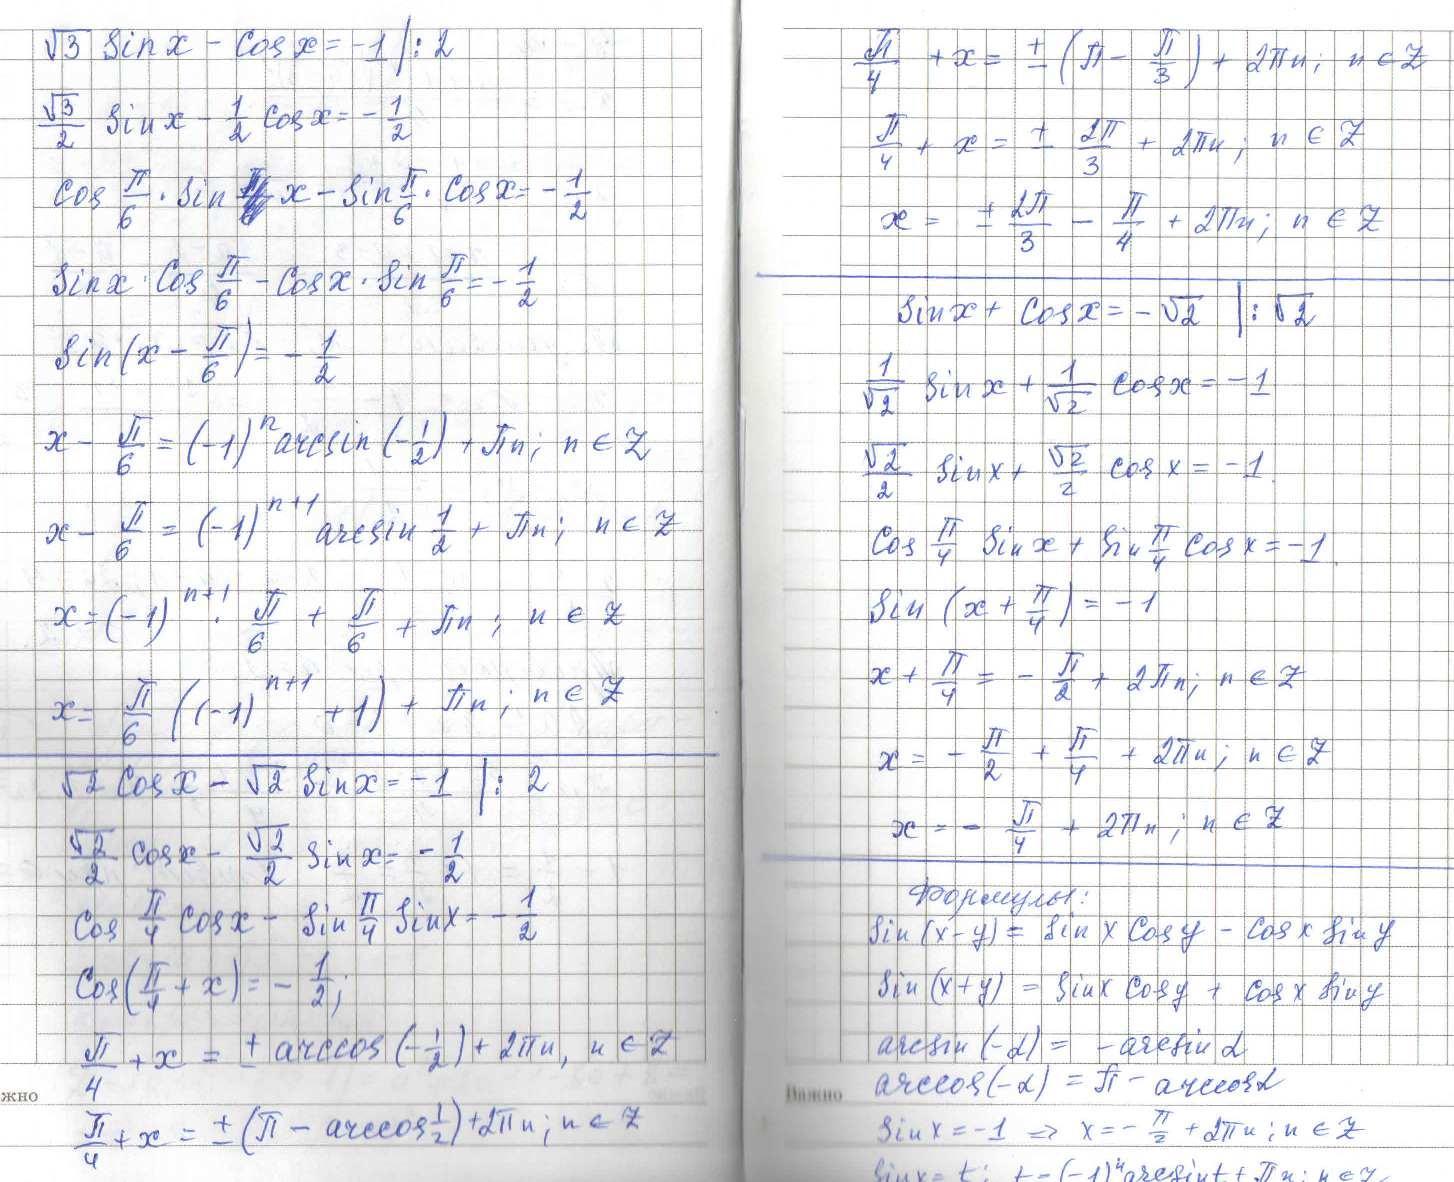 √3 sinx - cosx = -1 |: 2
√3/2 sinx - 1/2 cosx = -1/2
cos π/6 · sin x - sin π/6 · cosx = -1/2
sinx · cos π/6 - cosx · sin π/6 = -1/2
sin(x - π/6) = -1/2
x - π/6 = (-1)^n arcsin(-1/2) + πn; n ∈ Z
x - π/6 = (-1)^(n+1) arcsin 1/2 + πn; n ∈ Z
x = (-1)^(n+1) · π/6 + π/6 + πn; n ∈ Z
x = π/6 ((-1)^(n+1) + 1) + πn; n ∈ Z
√2 cosx - √2 sinx = -1 |: 2
√2/2 cosx - √2/2 sinx = -1/2
cos π/4 cosx - sin π/4 sinx = -1/2
cos(π/4 + x) = -1/2;
π/4 + x = ± arccos(-1/2) + 2πn, n ∈ Z
жно
π/4 + x = ±(π - arccos 1/2) + 2πn; n ∈ Z
π/4 + x = ±(π - π/3) + 2πn; n ∈ Z
π/4 + x = ± 2π/3 + 2πn; n ∈ Z
x = ± 2π/3 - π/4 + 2πn; n ∈ Z
sinx + cosx = -√2 |: √2
1/√2 sinx + 1/√2 cosx = -1
√2/2 sinx + √2/2 cosx = -1.
cos π/4 sinx + sin π/4 cosx = -1.
sin(x + π/4) = -1
x + π/4 = -π/2 + 2πn; n ∈ Z
x = -π/2 + π/4 + 2πn; n ∈ Z
x = -π/4 + 2πn; n ∈ Z
Формулы:
sin(x-y) = sinx cosy - cosx siny
sin(x+y) = sinx cosy + cosx siny
arcsin(-α) = -arcsin α
arccos(-α) = π - arccosα
Важно
sinx = -1 ⇒ x = -π/2 + 2πn; n ∈ Z
sinx = t; t = (-1)^n arcsint + πn; n ∈ Z.